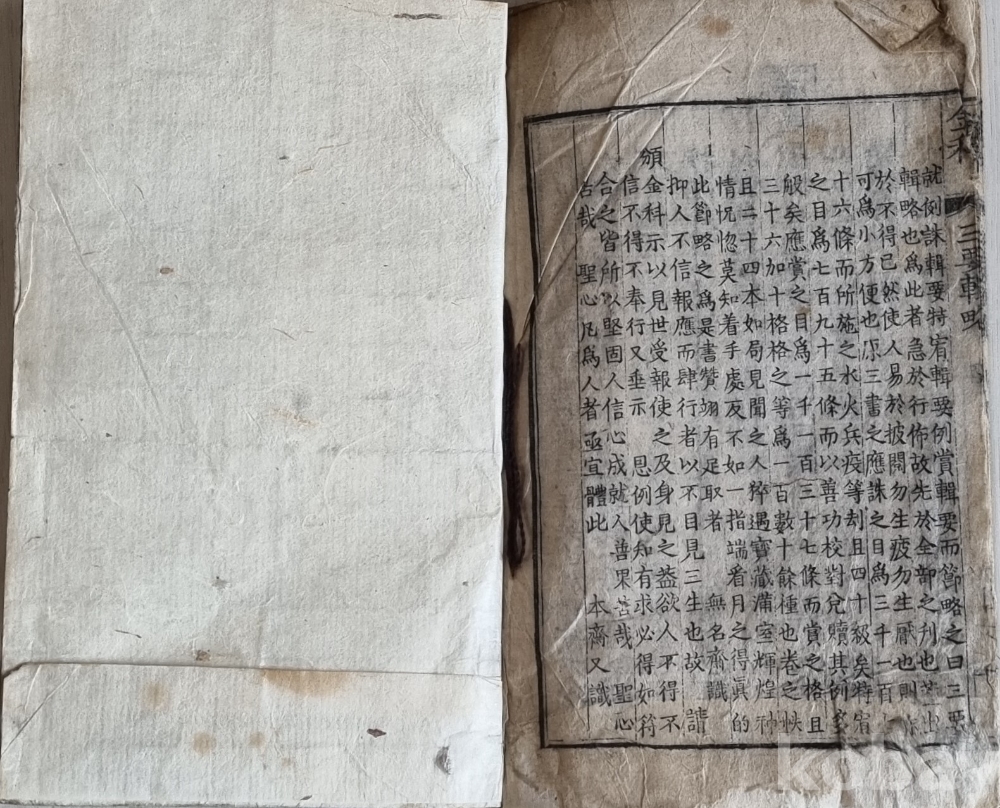 金科 三要輯略
就例誅輯要特宥輯要例賞輯要而節略之曰三要
輯略也爲此者急於行佈故先於全部之刊也蓋出
於不得已然使人易於披閱勿生疲勿生厭也則
可爲小方便也原三書之應誅之目爲三千一百
十六條而所施之水火兵疫等刦且四十級矣特宥
之目爲七百九十五條而以善功校對兌贖其例多
般矣應賞之目爲一千一百三十七條而賞之格且
三十六加十格格之等爲一百數十餘種也卷之帙
且二十四本如局見聞之人猝遇寶藏滿室輝煌神
情怳惚莫知着手處反不如一指端看月之得眞的
此節略之爲是書贊翊有足取者 無名齋識
抑人不信報應而肆行者以不目見三生也故 請
頒金科示以見世受報使之及身見之益欲人不得不
信不得不奉行又垂示 恩例使知有求必得如符
合之皆所以堅固人信心成就入善果苦哉 聖心
苦哉 聖心凡爲人者亟宜體此 本齋又識